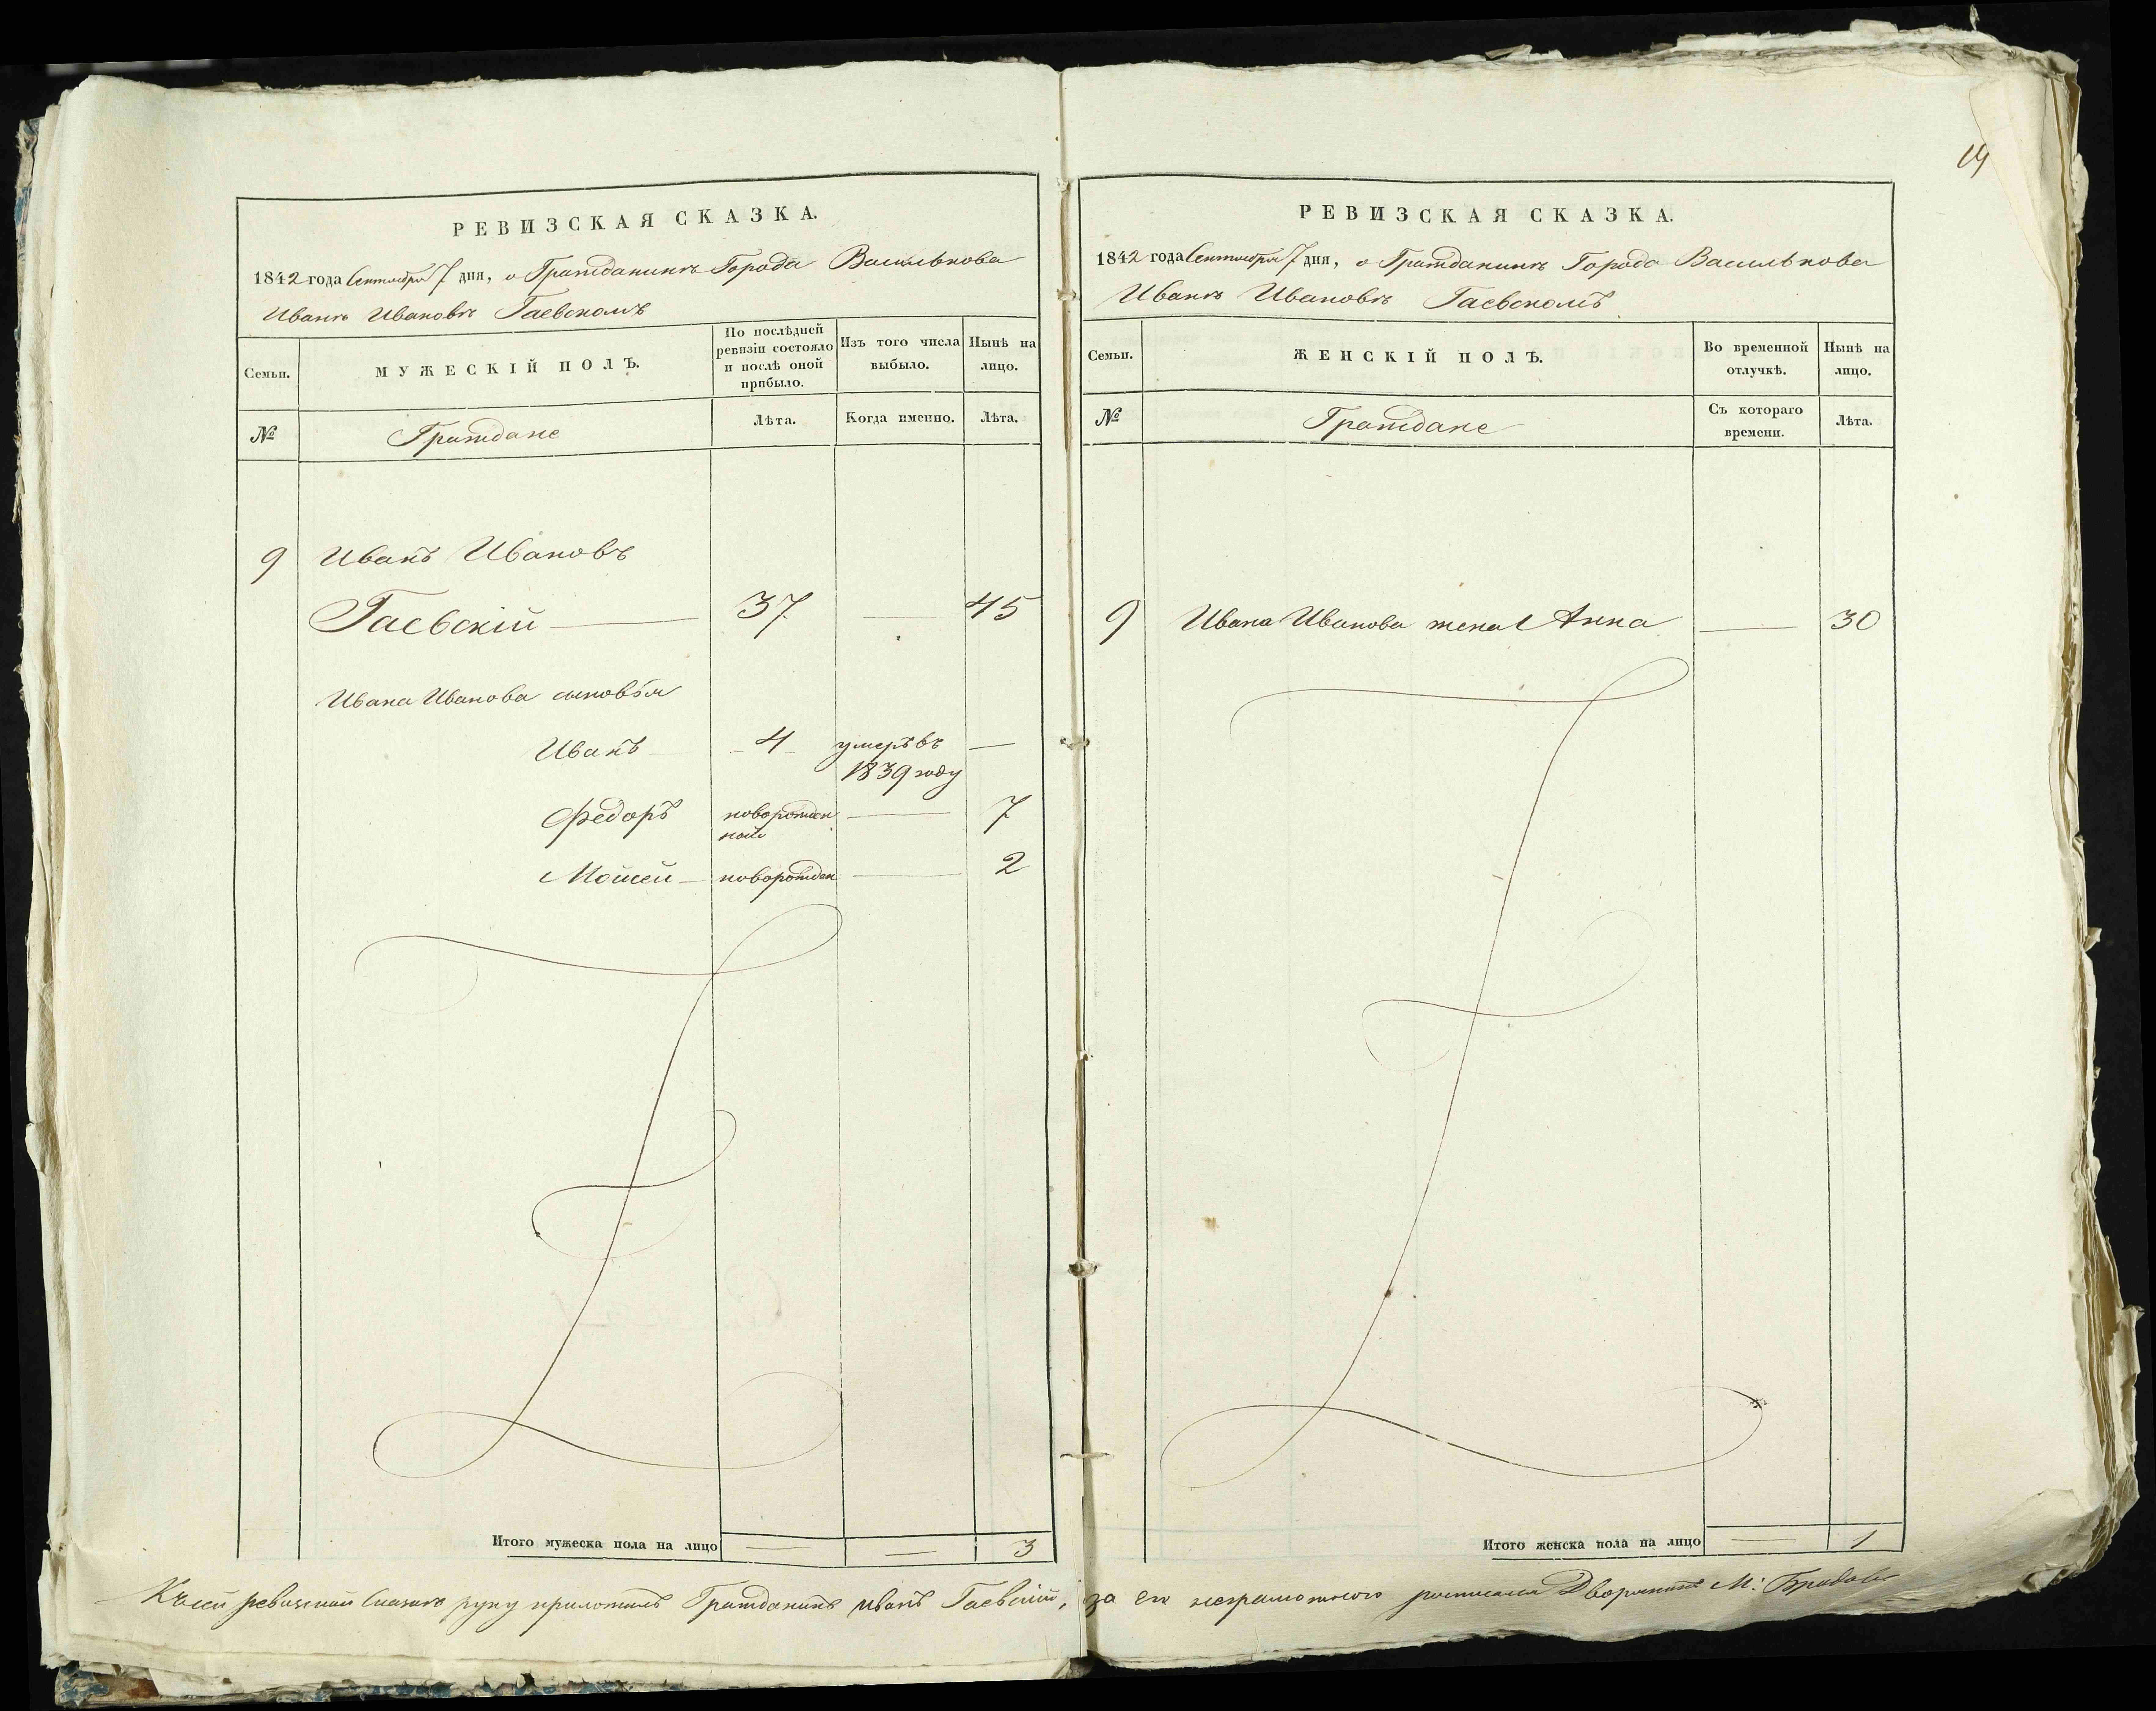 РЕВИЗСКАЯ СКАЗКА.
1842 года Сентября 7 дня, о Гражданинѣ Города Василькова
Иванѣ Ивановѣ Гаевскомъ
Семьи.
МУЖЕСКІЙ ПОЛЪ.
По послѣдней
ревизіи состояло
и послѣ оной
прибыло.
Изъ того числа
выбыло.
Нынѣ на
лицо.
№
Граждане
Лѣта.
Когда именно.
Лѣта.
9 Иванъ Ивановъ
Гаевскій — 37 — 45
Ивана Иванова сыновья
Иванъ 4 умеръ въ —
1839 году
Федоръ новорожден — 7
ный
Мойсей — новорожден — 2
Итого мужеска пола на лицо — — 3
19
РЕВИЗСКАЯ СКАЗКА.
1842 года Сентября 7 дня, о Гражданинѣ Города Василькова
Иванѣ Ивановѣ Гаевскомъ
Семьи.
ЖЕНСКІЙ ПОЛЪ.
Во временной
отлучкѣ.
Нынѣ на
лицо.
№
Граждане
Съ котораго
времени.
Лѣта.
9 Ивана Иванова жена Анна — 30
Итого женска пола на лицо — 1
Къ сей ревизской Сказкѣ руку приложилъ Гражданинъ иванъ Гаевскій, за его неграмотного Дворянинъ М: